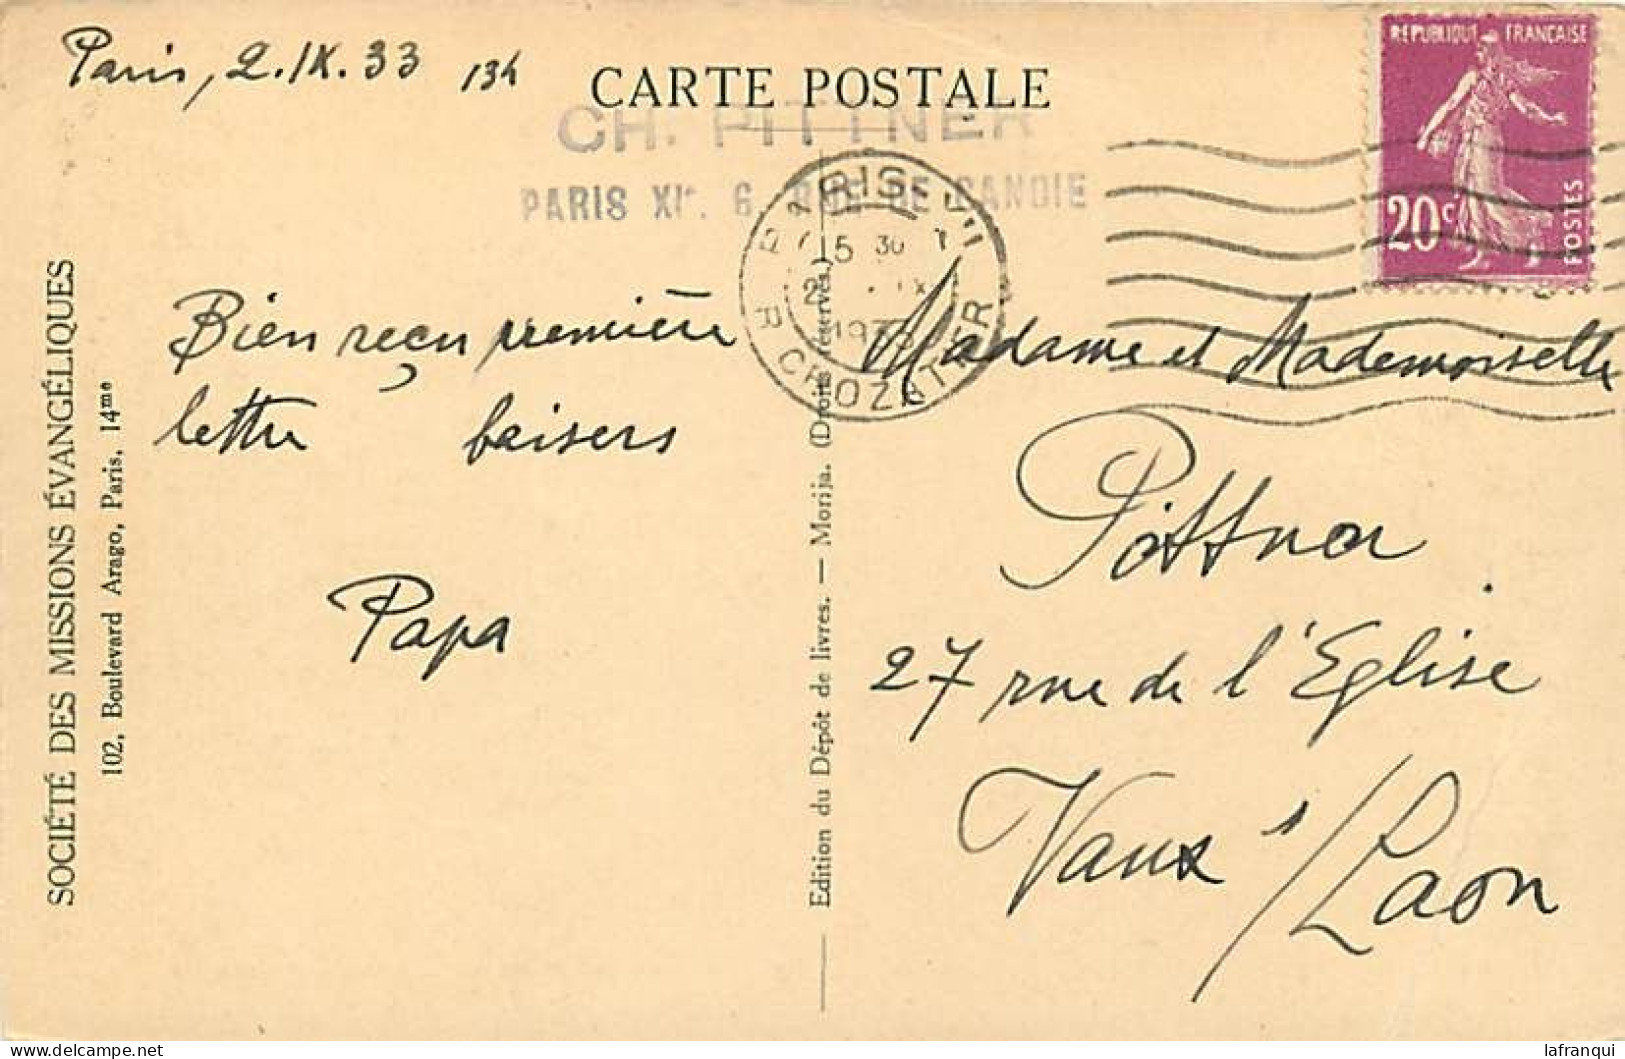 Paris, 2.IX.33 13h
CARTE POSTALE
CH. PITTNER
PARIS XIe. 6, RUE DE CANDIE
RÉPUBLIQUE FRANÇAISE
20c
POSTES
PARIS
R CROZATIER
5 30
2 IX
1933
Bien reçu première
lettre baisers
Papa
Madame et Mademoiselle
Pittner
27 rue de l'Eglise
Vaux s/Laon
SOCIÉTÉ DES MISSIONS ÉVANGÉLIQUES
102, Boulevard Arago, Paris, 14me
Edition du Dépôt de livres. — Morija. (Droits réservés.)
delcampe.net
lafranqui